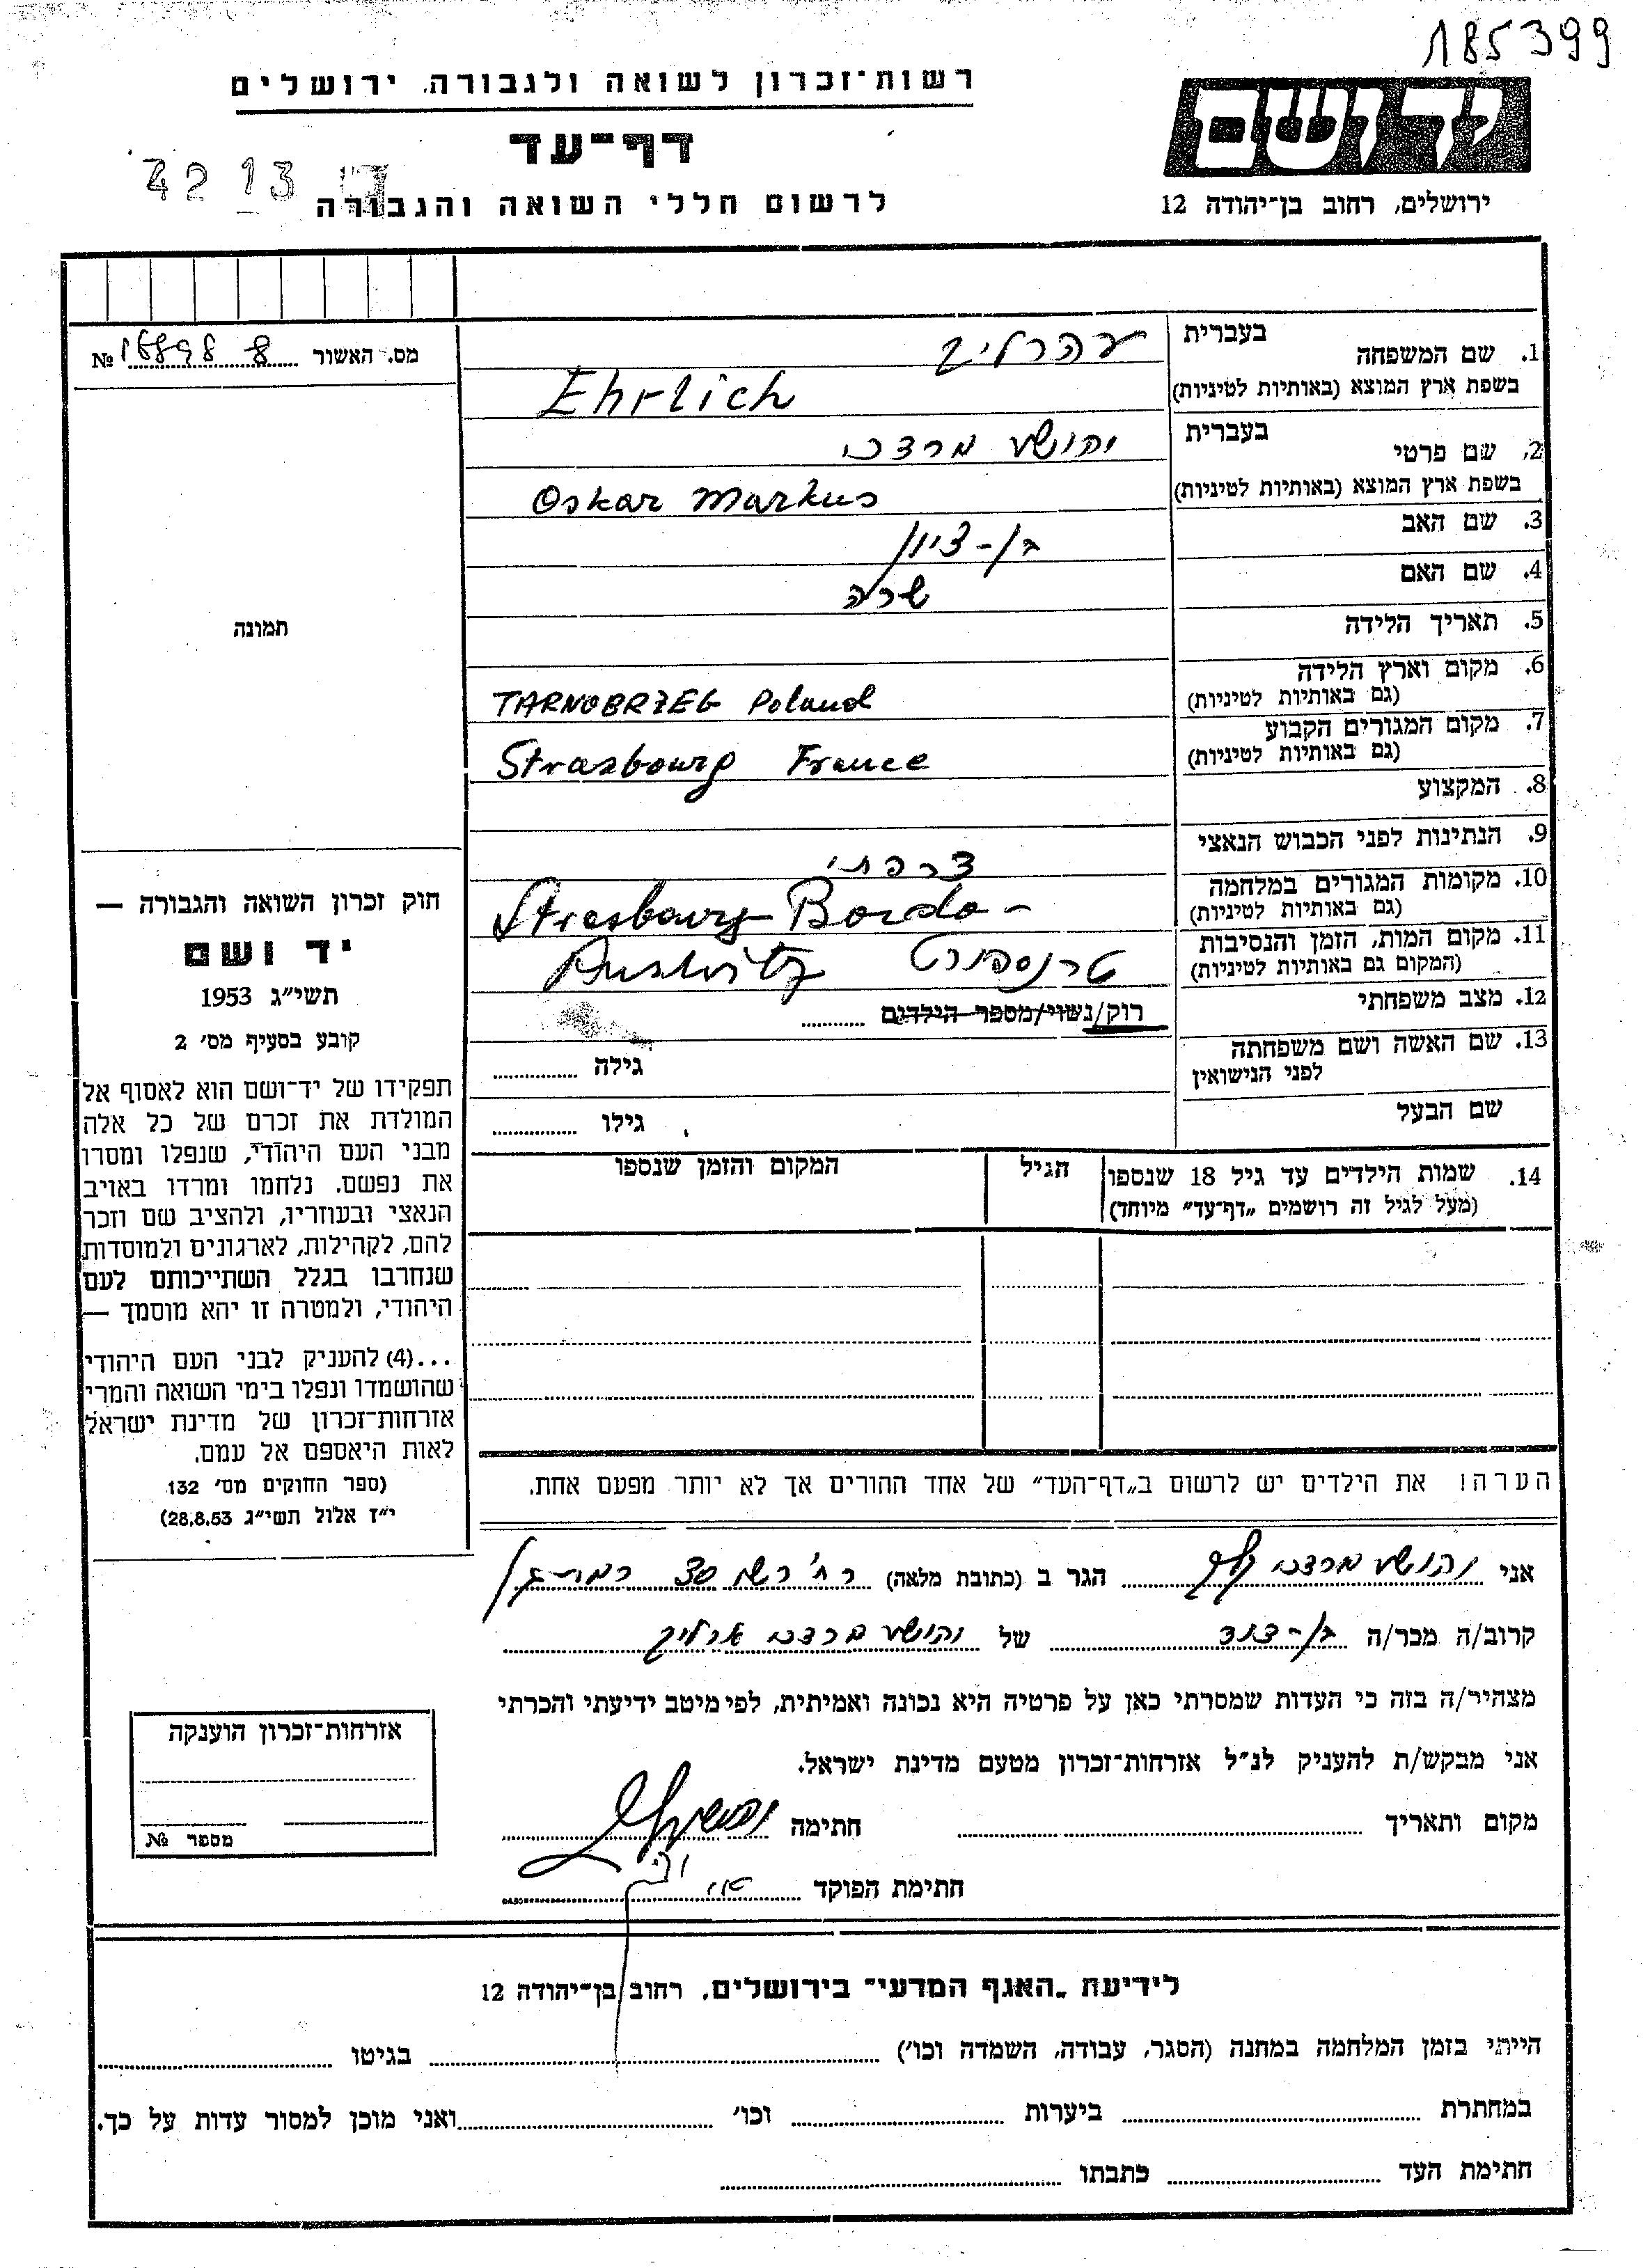 185399
רשות־זכרון לשואה ולגבורה, ירושלים
יד ושם
דף־עד
3213
לרשום חללי השואה והגבורה
ירושלים, רחוב בן־יהודה 12
מס. האשור 8 16898 №
1. שם המשפחה
בעברית
עהרליך
בשפת ארץ המוצא (באותיות לטיניות)
Ehrlich
2. שם פרטי
בעברית
יהושע מרדכי
בשפת ארץ המוצא (באותיות לטיניות)
Oskar Markus
3. שם האב
בן-ציון
4. שם האם
שרה
5. תאריך הלידה
6. מקום וארץ הלידה
(גם באותיות לטיניות)
TARNOBRZEG Poland
7. מקום המגורים הקבוע
(גם באותיות לטיניות)
Strasbourg France
8. המקצוע
9. הנתינות לפני הכבוש הנאצי
צרפתי
10. מקומות המגורים במלחמה
(גם באותיות לטיניות)
Strasbourg- Bordo -
11. מקום המות, הזמן והנסיבות
(המקום גם באותיות לטיניות)
טרנספורט Auslvitz
12. מצב משפחתי
רוק/נשוי/מספר הילדים
13. שם האשה ושם משפחתה
לפני הנישואין
גילה
שם הבעל
גילו
14. שמות הילדים עד גיל 18 שנספו
(מעל לגיל זה רושמים „דף־עד” מיוחד)
הגיל
המקום והזמן שנספו
תמונה
חוק זכרון השואה והגבורה —
יד ושם
תשי״ג 1953
קובע בסעיף מס׳ 2
תפקידו של יד־ושם הוא לאסוף אל
המולדת את זכרם של כל אלה
מבני העם היהודי, שנפלו ומסרו
את נפשם, נלחמו ומרדו באויב
הנאצי ובעוזריו, ולהציב שם וזכר
להם, לקהילות, לארגונים ולמוסדות
שנחרבו בגלל השתייכותם לעם
היהודי, ולמטרה זו יהא מוסמך —
...(4) להעניק לבני העם היהודי
שהושמדו ונפלו בימי השואה והמרי
אזרחות־זכרון של מדינת ישראל
לאות היאספם אל עמם.
(ספר החוקים מס׳ 132
י״ז אלול תשי״ג 28.8.53)
הערה! את הילדים יש לרשום ב„דף־העד” של אחד ההורים אך לא יותר מפעם אחת.
אני יהושע מרדכי הגר ב (כתובת מלאה) רח׳ רש״י רמת-גן
קרוב/ה מכר/ה בן-דוד של יהושע מרדכי ארליך
מצהיר/ה בזה כי העדות שמסרתי כאן על פרטיה היא נכונה ואמיתית, לפי מיטב ידיעתי והכרתי
אני מבקש/ת להעניק לנ״ל אזרחות־זכרון מטעם מדינת ישראל.
מקום ותאריך חתימה
חתימת הפוקד
אזרחות־זכרון הוענקה
מספר №
לידיעת „האגף המדעי” בירושלים, רחוב בן־יהודה 12
הייתי בזמן המלחמה במחנה (הסגר, עבודה, השמדה וכו׳) בגיטו
במחתרת ביערות וכו׳ ואני מוכן למסור עדות על כך.
חתימת העד כתבתו